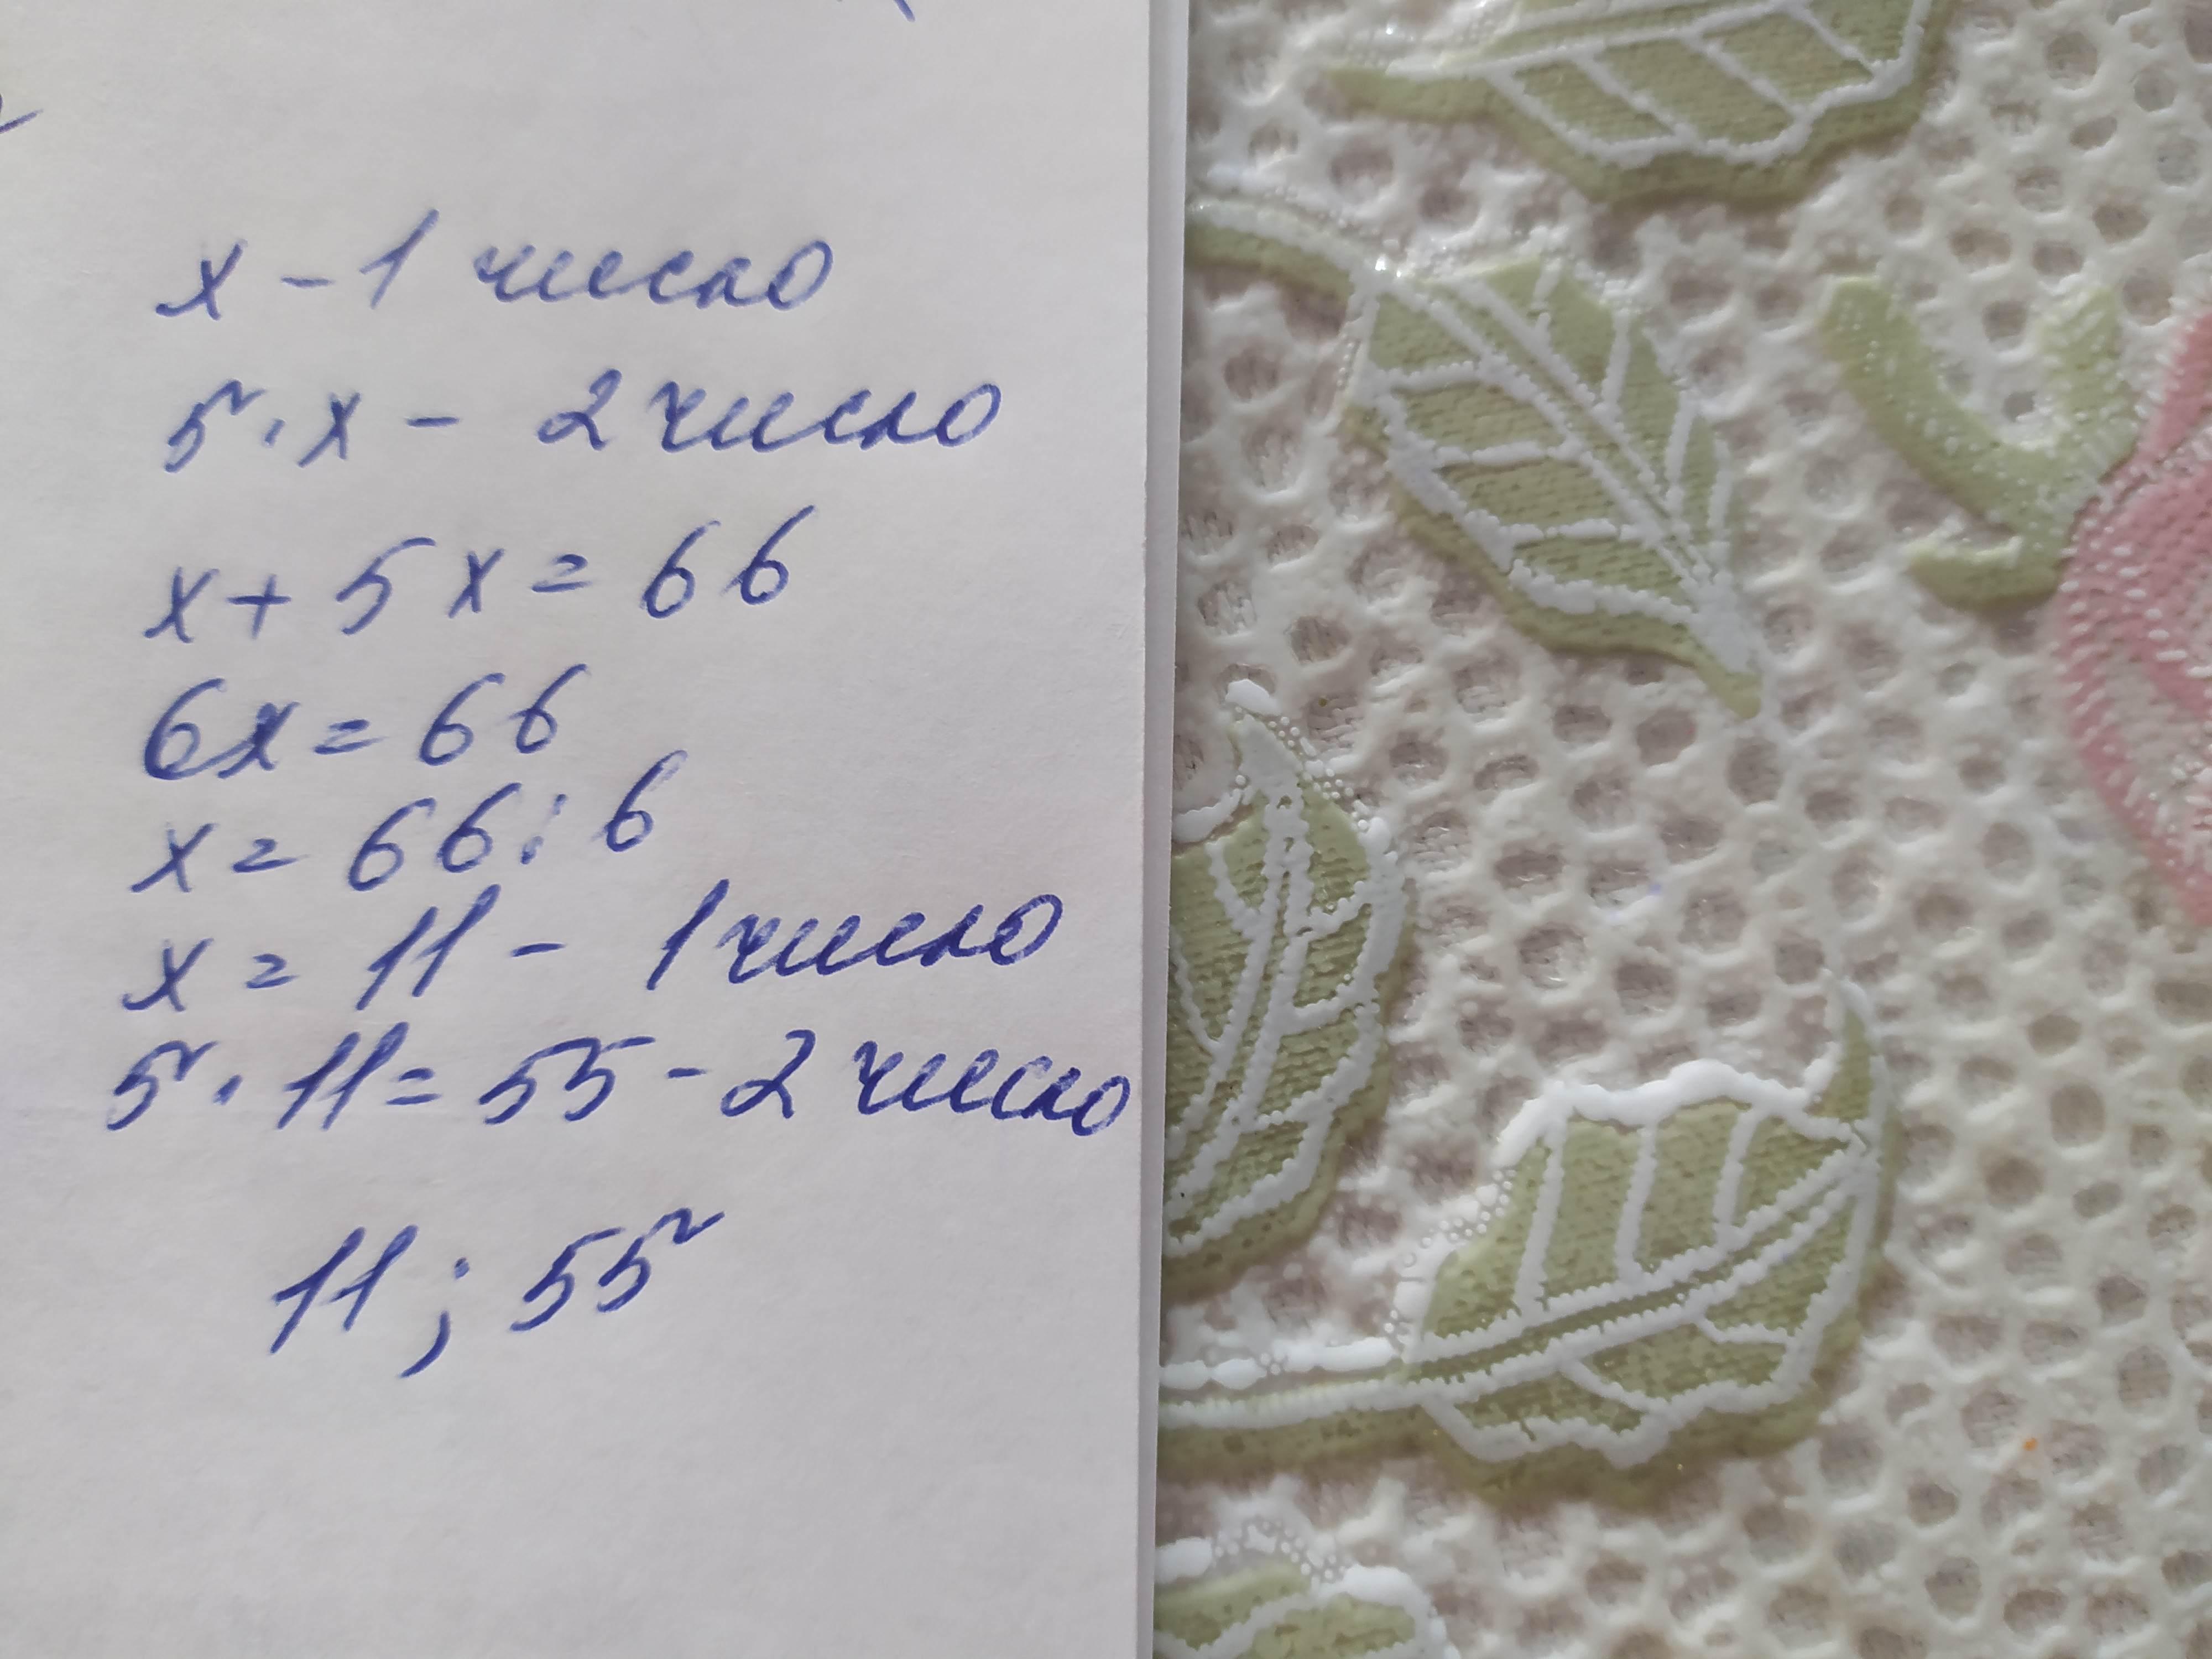 x - 1 число
5 · x - 2 число
x + 5x = 66
6x = 66
x = 66 : 6
x = 11 - 1 число
5 · 11 = 55 - 2 число
11 ; 55